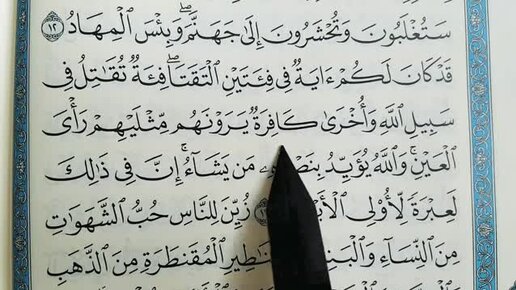 سَتُغْلَبُونَ وَتُحْشَرُونَ إِلَىٰ جَهَنَّمَ ۚ وَبِئْسَ ٱلْمِهَادُ ١٢
قَدْ كَانَ لَكُمْ ءَايَةٌ فِى فِئَتَيْنِ ٱلْتَقَتَا ۖ فِئَةٌ تُقَٰتِلُ فِى
سَبِيلِ ٱللَّهِ وَأُخْرَىٰ كَافِرَةٌ يَرَوْنَهُم مِّثْلَيْهِمْ رَأْىَ
ٱلْعَيْنِ ۚ وَٱللَّهُ يُؤَيِّدُ مَن يَشَآءُ ۗ إِنَّ فِى ذَٰلِكَ
لَعِبْرَةً لِّأُو۟لِى زُيِّنَ لِلنَّاسِ حُبُّ ٱلشَّهَوَٰتِ
مِنَ ٱلنِّسَآءِ ٱلْمُقَنطَرَةِ مِنَ ٱلذَّهَبِ